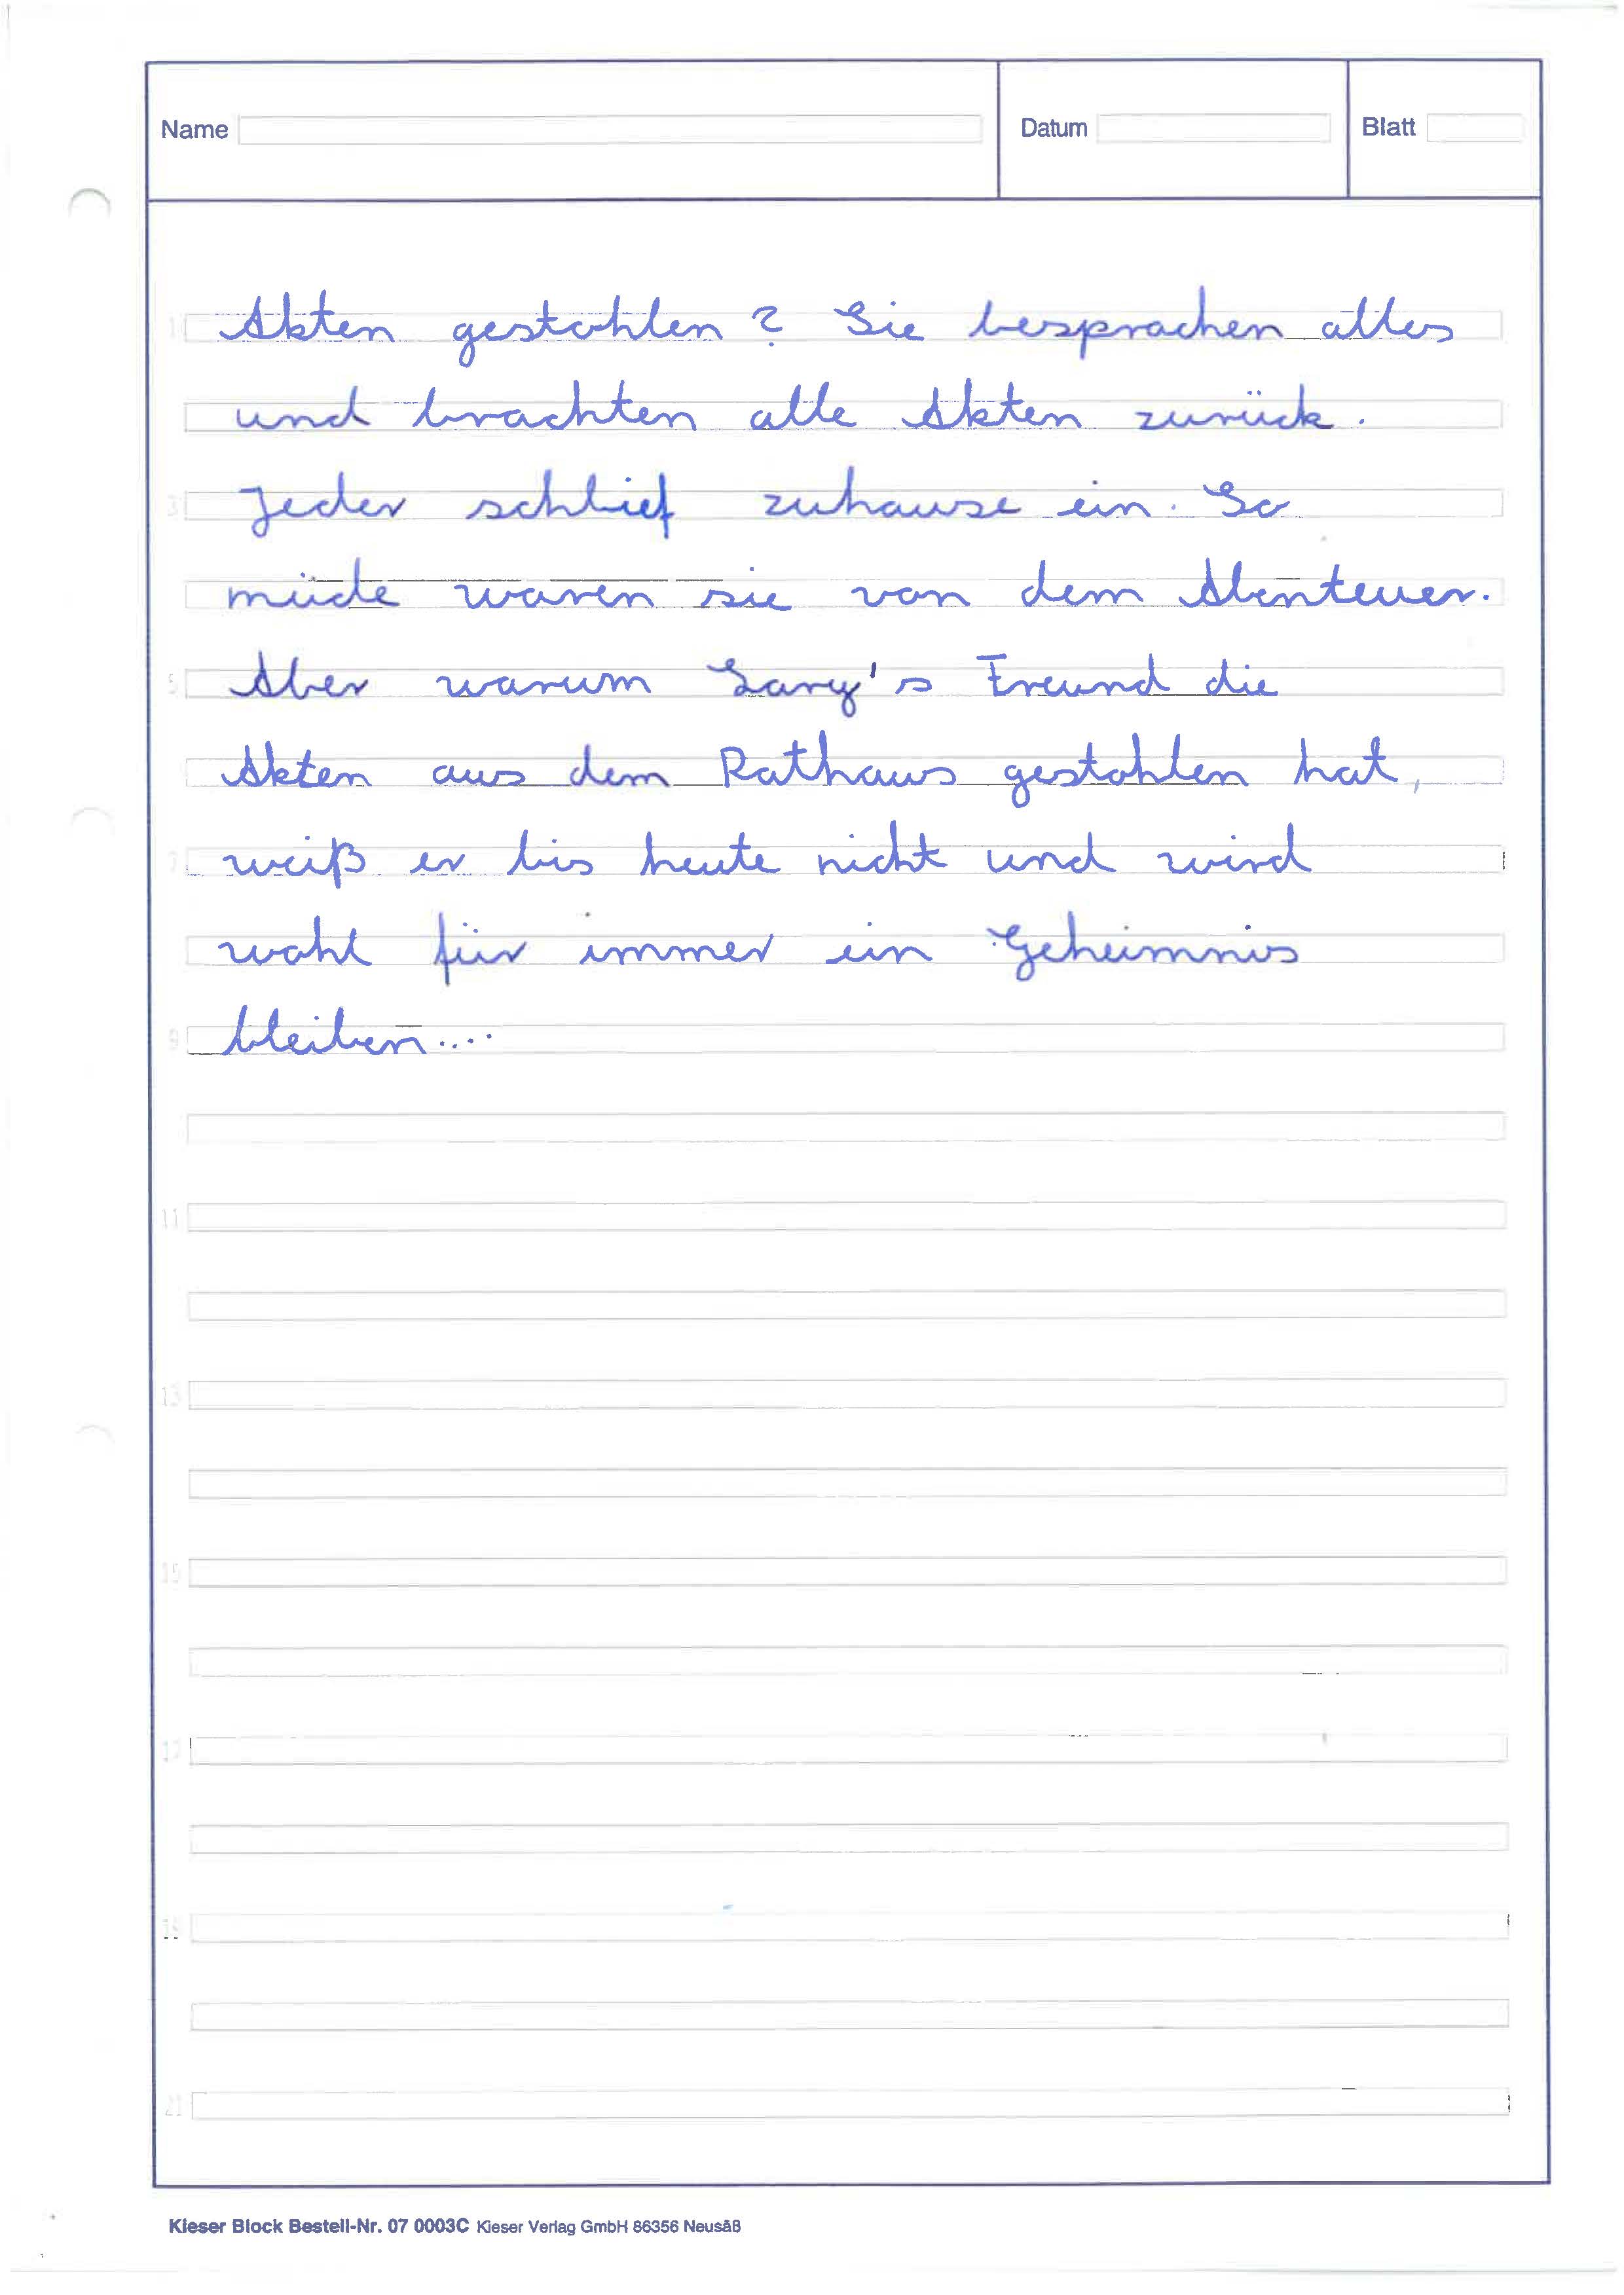 Name Datum Blatt
1 Akten gestohlen? Sie besprachen alles
und brachten alle Akten zurück.
3 Jeder schlief zuhause ein. So
müde waren sie von dem Abenteuer.
5 Aber warum Lary's Freund die
Akten aus dem Rathaus gestohlen hat,
7 weiß er bis heute nicht und wird
wohl für immer ein Geheimnis
9 bleiben....
11
13
15
17
19
21
Kieser Block Bestell-Nr. 07 0003C Kieser Verlag GmbH 86356 Neusäß